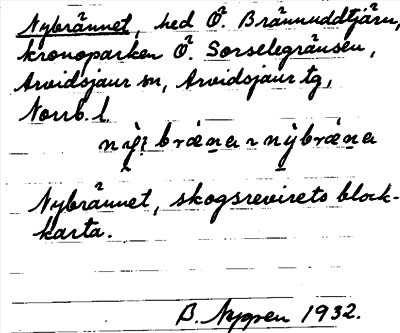 Nybrännet, hed Ö. Brännuddtjärn,
kronoparken Ö. Sorselegränsen,
Arvidsjaur sn, Arvidsjaur tg,
Norrb. l.
bræna ~ nỳbræna
Nybrännet, skogsrevirets block-
karta.
B. Nygren 1932.